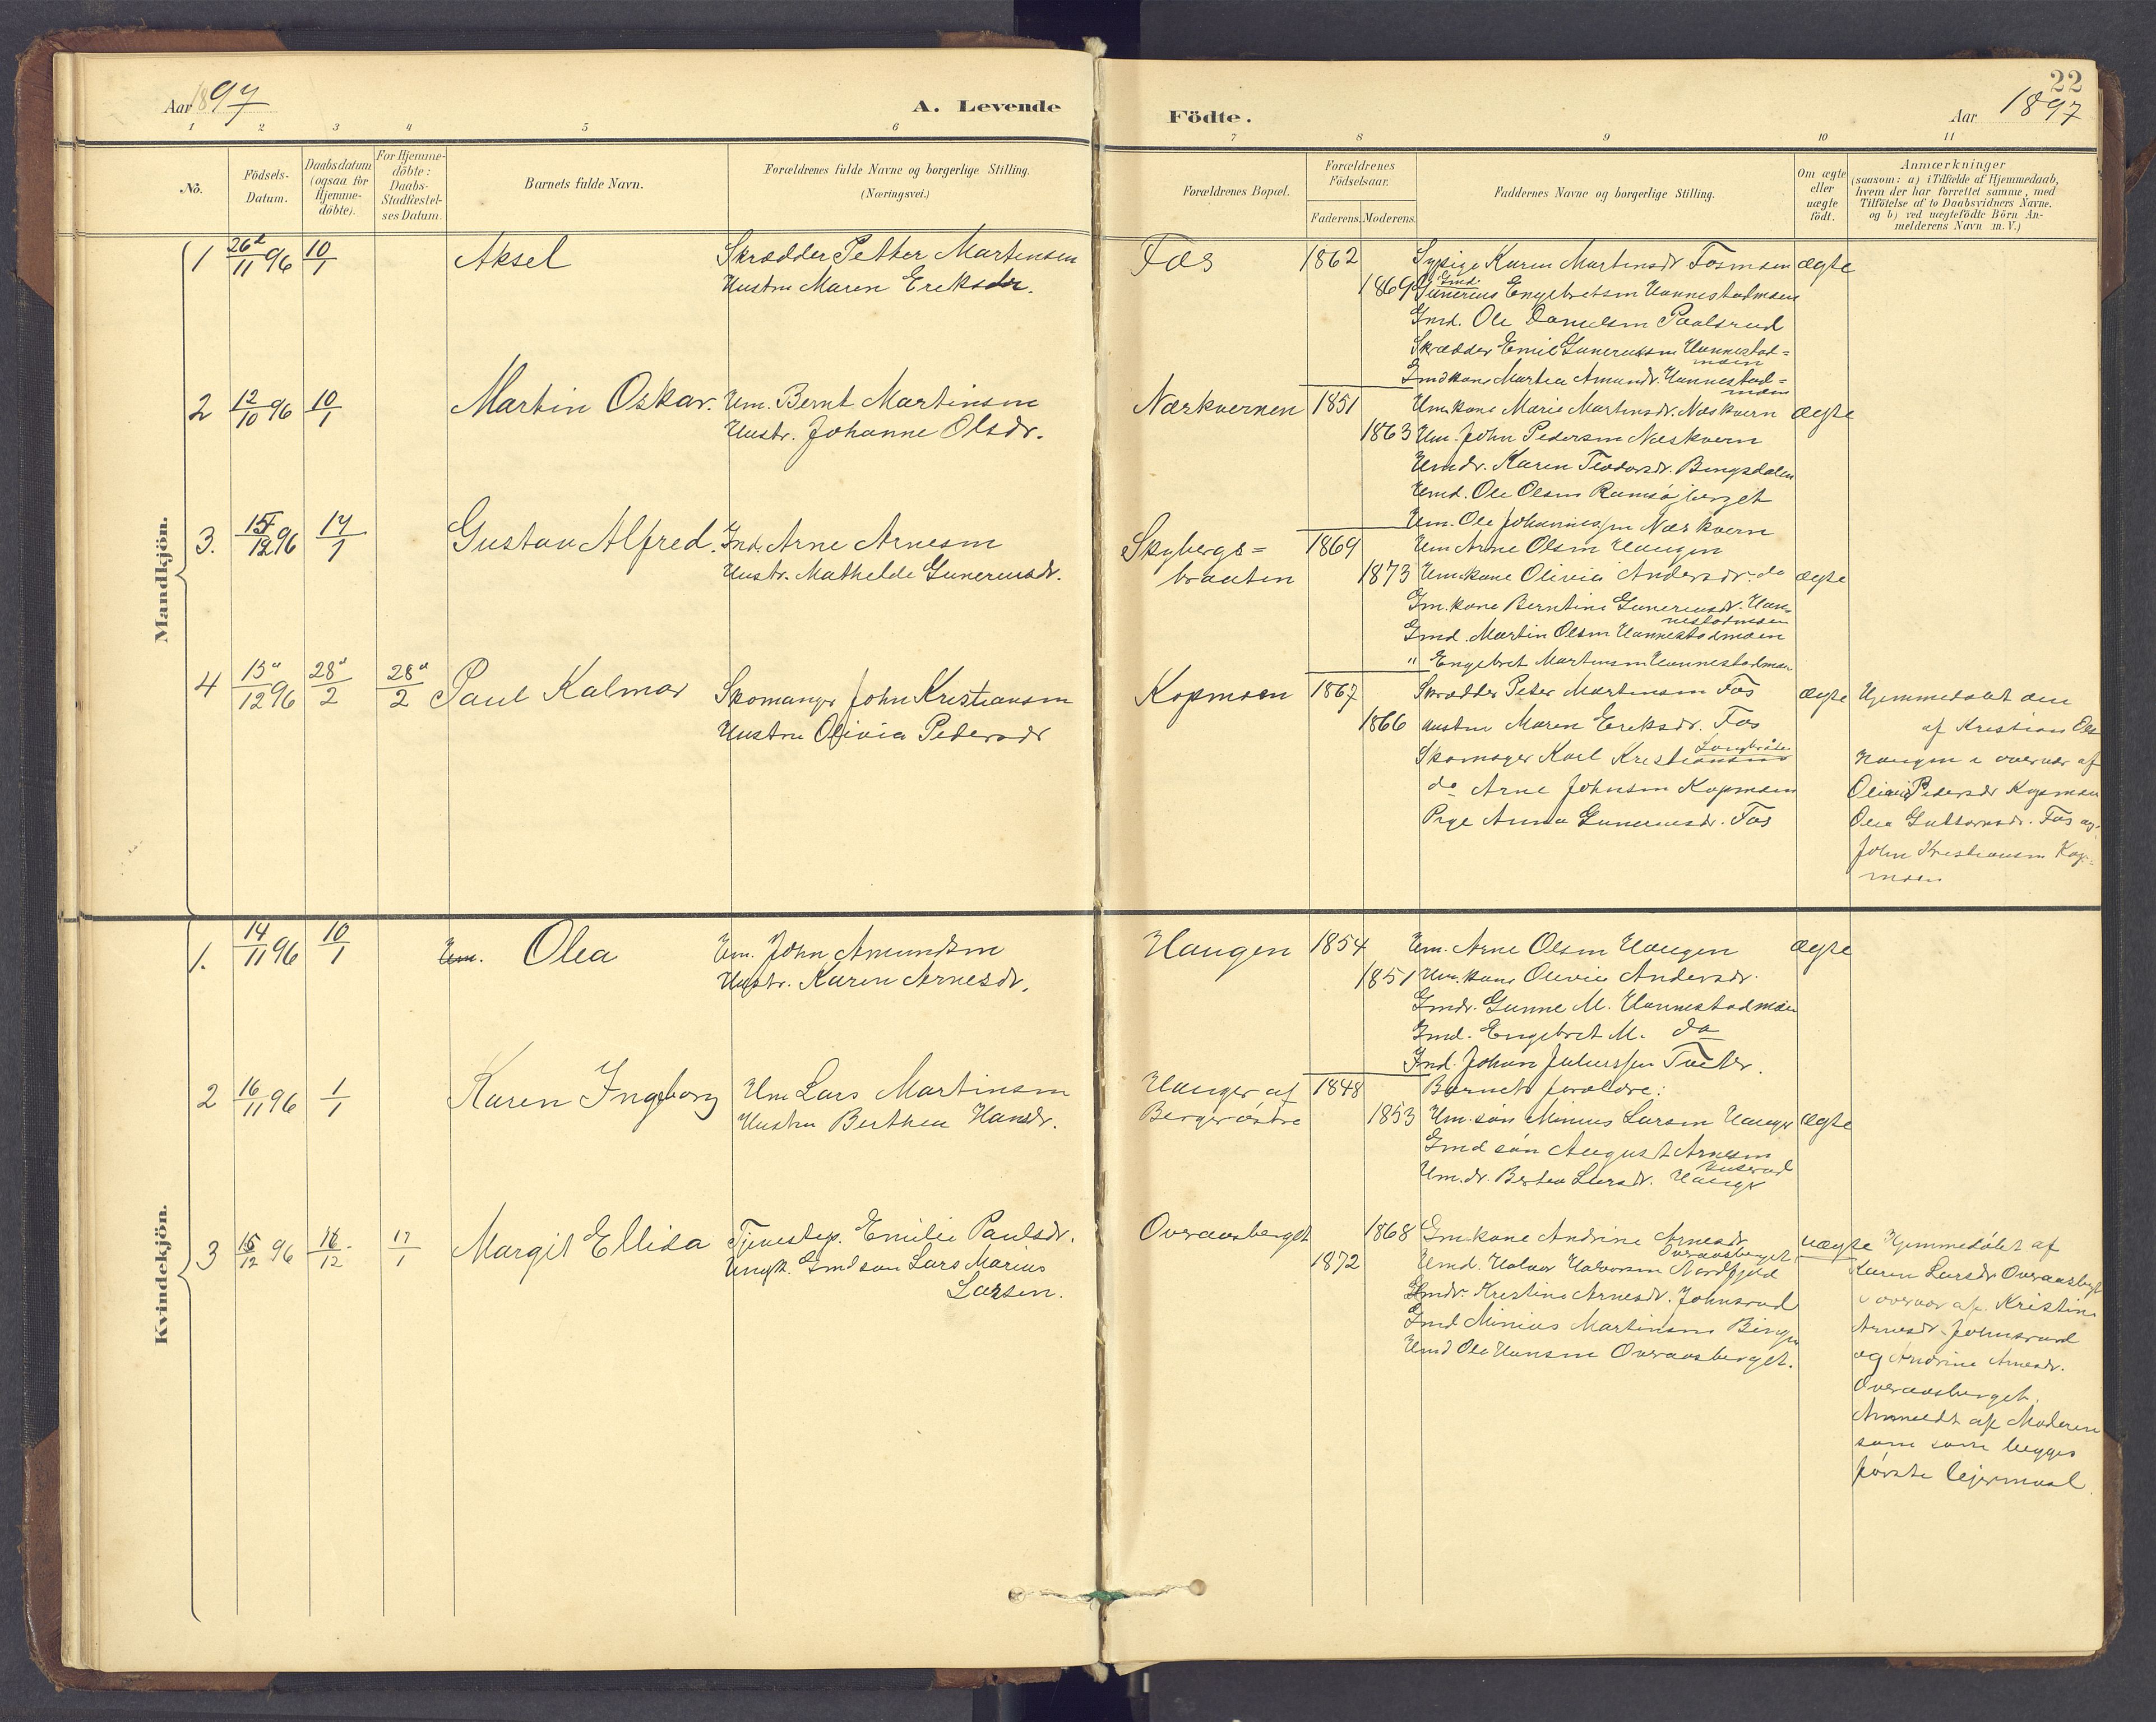 Aar 1897
A. Levende
Födte.
22
Aar 1897
1 2 3 4 5 6 7 8 9 10 11
No.
Födsels-
Datum.
Daabsdatum
(ogsaa for
Hjemme-
döbte).
For Hjemme-
döbte:
Daabs-
Stadfæstel-
ses Datum.
Barnets fulde Navn.
Forældrenes fulde Navne og borgerlige Stilling.
(Næringsvei.)
Forældrenes Bopæl.
Forældrenes
Födselsaar.
Faderens. Moderens.
Faddernes Navne og borgerlige Stilling.
Om ægte
eller
uægte
födt.
Anmærkninger
(saasom: a) i Tilfælde af Hjemmedaab,
hvem der har forrettet samme, med
Tilföielse af to Daabsvidners Navne.
og b) ved uægtefödte Börn An-
melderens Navn m.V.)
Mandkjön.
1 26/11 96 10/1 Aksel
Skrædder Petter Martensen
Hustru Maren Eriksdr.
Fos 1862
1869
Sypige Karen Martinsdr Fosmoen ægte
Gmd.
Gunerius Engebretsen Hannestadmoen
Gmd. Ole Danielsen Paalsrud
Skrædder Emil Gunerussen Hannestad=
moen
Gmdkone Martea Amundr. Hannestad=
moen
2 12/10 96 10/1 Martin Oskar.
Hm. Bernt Martinsen
Hustr. Johanne Olsdr.
Nærkvernen 1851
1863
Hmkone Marie Martinsdr. Næskvern ægte
Hm. John Pedersen Næskvern
Hmdr. Karen Teodorsdr. Bingsdalen
Hmd. Ole Olsen Ramsöberget
Hm. Ole Johannessen Nærkvern
3. 15/12 96 17/1 Gustav Alfred.
Ind. Arne Arnesen
Hustr. Mathilde Guneriusdr.
Skybergs=
braaten
1869
1873
Hm Arne Olsen Haugen
Hmkone Olivia Andersdr. do ægte
Gm. kone Berntine Guneriusdr. Han-
nestadmoen
Gmd. Martin Olsen Hannestadmoen
" Engebret Martinsen Hannestadmoen
4 15/12 96 28/2 28/2 Paul Kalmar
Skomager John Kristiansen
Hustru Olivia Pedersdr
Kopmoen 1867
1866
Skrædder Peter Martinsen Fos ægte
Hustru Maren Eriksdr. Fos
Skomager Karl Kristiansen
do Arne Johnsen Kopmoen
Pige Anna Gunerusdr. Fos
Hjemmedöbt den
af Kristian Ols
Haugen i overvær af
Olivia Pedersdr Kopmoen
Olea Guttormsdr. Fos og
John Kristiansen Kop=
moen
Kvindekjön.
1. 14/11 96 10/1 Hm. Olea
Hm. John Amundsen
Hustr. Karen Arnesdr.
Haugen 1854
1851
Hm. Arne Olsen Haugen ægte
Hm. kone Olivia Andersdr.
Gmdr. Gunne M. Hannestadmoen
Gmd. Engebret M. do
Ind. Johan Juliussen Toeter.
2 16/11 96 1/1 Karen Ingeborg
Hm Lars Martinsen
Hustru Berthea Hansdr.
Hauger af
Berger östre
1848
1853
Barnets forældre:
Hm. sön Minius Larsen Hauger ægte
Gmd sön August Arnesen
Hm. dr. Bertea Larsdr. Hauger
3 15/12 96 18/12 17/1 Margit Elida
Tjenestep. Emilie Paulsdr.
Ungk. Gmdsön Lars Marius
Larsen.
Overaasberget 1868
1872
Gmkone Andrine Arnesdr uægte
Overaasberget
Hmd. Halvor Halvorsen Nordfjeld
Gmdr. Kristine Arnesdr. Johnsrud
Gmd Minius Martinsen Bingen
Hmd Ole Hansen Overaasberget.
Hjemmedöbt af
Karen Larsdr Overaasberget
i overvær af Kristine
Arnesdr. Johnsrud
og Andrine Arnesdr.
Overaasberget.
Anmeldt af Moderen
som som begges
förste lejermaal.